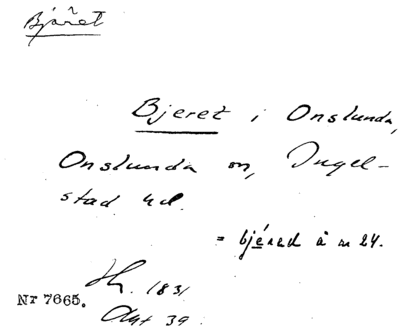 Bjäret
Bjeret i Onslunda,
Onslunda sn, Ingel-
stad hd.
= bjéred å n 24.
1831
Nr 7665.
Akt 39.